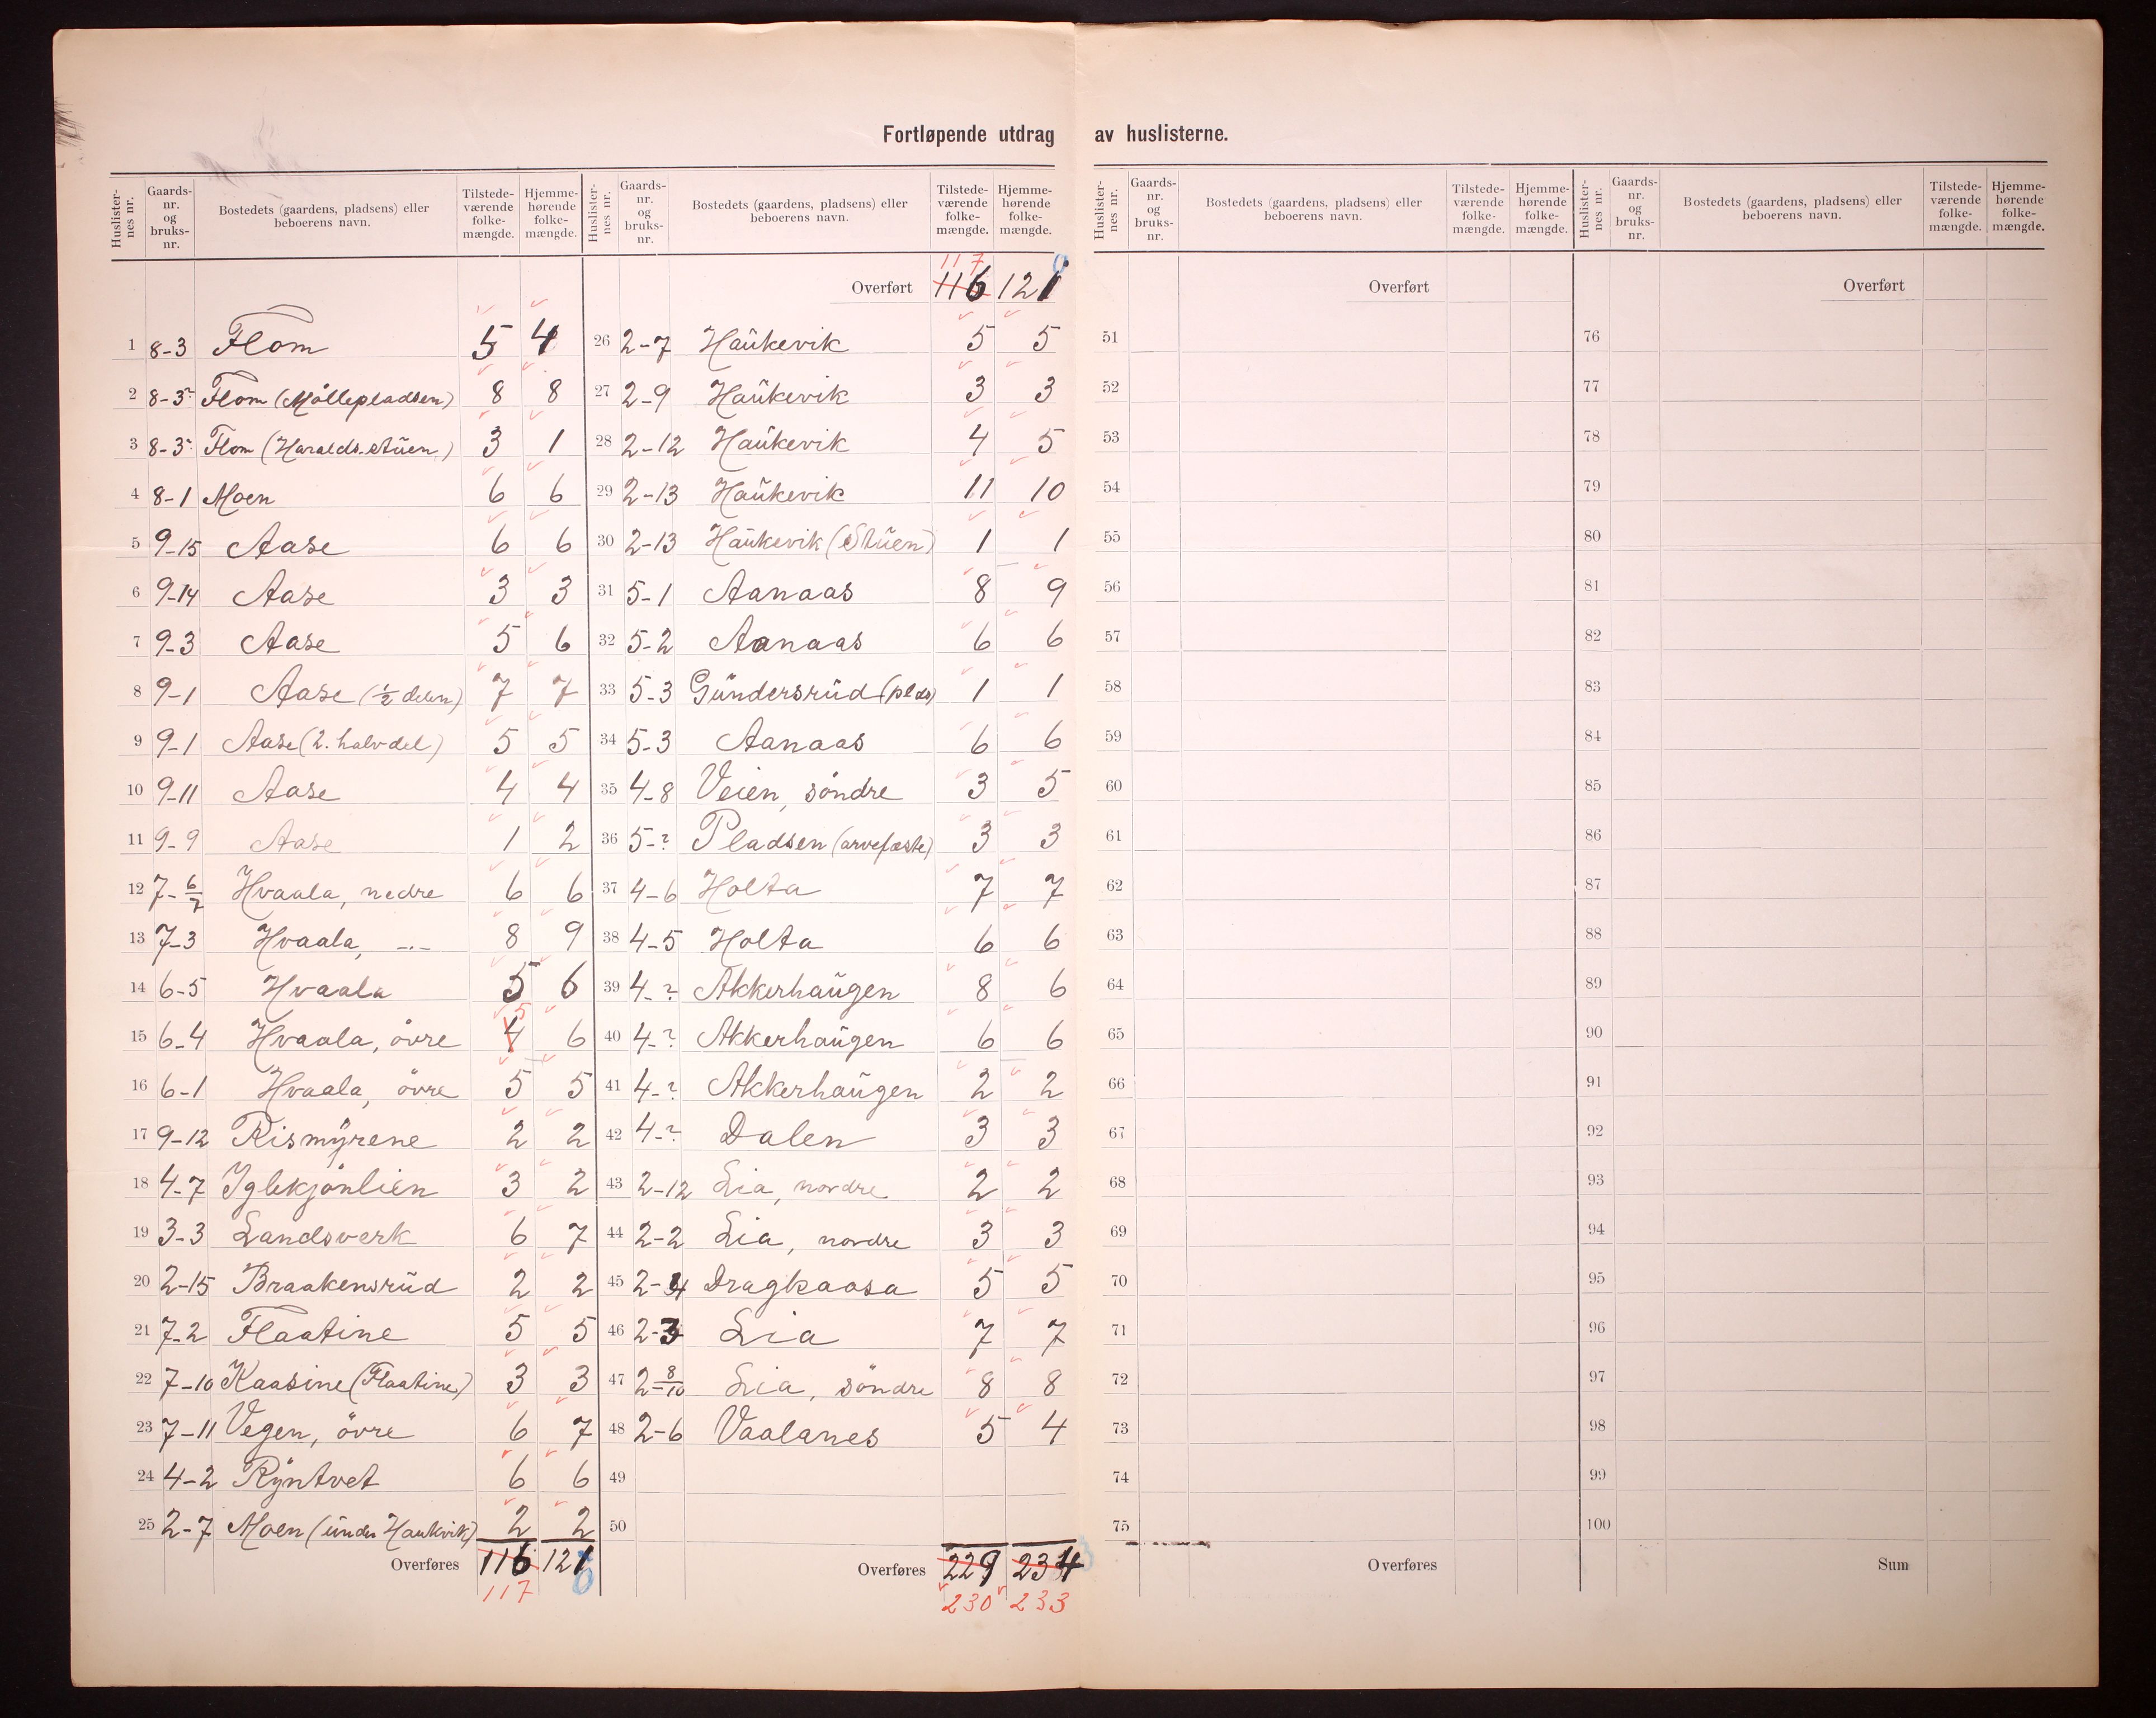 Fortløpende utdrag av huslisterne.
Huslisternes nr. Gaardsnr. og bruksnr. Bostedets (gaardens, pladsens) eller beboerens navn. Tilstedeværende folkemængde. Hjemmehørende folkemængde.
1 8-3 Flom 5 4
2 8-3 Flom (Møllepladsen) 8 8
3 8-3 Flom (Haralds-stuen) 3 1
4 8-1 Moen 6 6
5 9-15 Aase 6 6
6 9-14 Aase 3 3
7 9-3 Aase 5 6
8 9-1 Aase (1/2 delen) 7 7
9 9-1 Aase (2. halvdel) 5 5
10 9-11 Aase 4 4
11 9-9 Aase 1 2
12 7-6/7 Hvaala, nedre 6 6
13 7-3 Hvaala, -.- 8 9
14 6-5 Hvaala 5 6
15 6-4 Hvaala, övre 4 5 6
16 6-1 Hvaala, övre 5 5
17 9-12 Rismyrene 2 2
18 4-7 Iglekjönlien 3 2
19 3-3 Landsverk 6 7
20 2-15 Braakensrud 2 2
21 7-2 Flaatine 5 5
22 7-10 Kaasine (Flaatine) 3 3
23 7-11 Vegen, övre 6 7
24 4-2 Ryntvet 6 6
25 2-7 Moen (under Haukvik) 2 2
Overføres 116 121
117 0
Huslisternes nr. Gaardsnr. og bruksnr. Bostedets (gaardens, pladsens) eller beboerens navn. Tilstedeværende folkemængde. Hjemmehørende folkemængde.
117 0
Overført 116 121
26 2-7 Haukevik 5 5
27 2-9 Haukevik 3 3
28 2-12 Haukevik 4 5
29 2-13 Haukevik 11 10
30 2-13 Haukevik (Stuen) 1 1
31 5-1 Aanaas 8 9
32 5-2 Aanaas 6 6
33 5-3 Gundersrud (plds) 1 1
34 5-3 Aanaas 6 6
35 4-8 Veien, söndre 3 5
36 5-? Pladsen (arvefæste) 3 3
37 4-6 Holta 7 7
38 4-5 Holta 6 6
39 4-? Akkerhaugen 8 6
40 4-? Akkerhaugen 6 6
41 4-? Akkerhaugen 2 2
42 4-? Dalen 3 3
43 2-12 Lia, nordre 2 2
44 2-2 Lia, nordre 3 3
45 2-4 Dragkaasa 5 5
46 2-3 Lia 7 7
47 2-8/10 Lia, söndre 8 8
48 2-6 Vaalanes 5 4
49
50
Overføres 229 234
230 233
Huslisternes nr. Gaardsnr. og bruksnr. Bostedets (gaardens, pladsens) eller beboerens navn. Tilstedeværende folkemængde. Hjemmehørende folkemængde.
Overført
51
52
53
54
55
56
57
58
59
60
61
62
63
64
65
66
67
68
69
70
71
72
73
74
75
Overføres
Huslisternes nr. Gaardsnr. og bruksnr. Bostedets (gaardens, pladsens) eller beboerens navn. Tilstedeværende folkemængde. Hjemmehørende folkemængde.
Overført
76
77
78
79
80
81
82
83
84
85
86
87
88
89
90
91
92
93
94
95
96
97
98
99
100
Sum